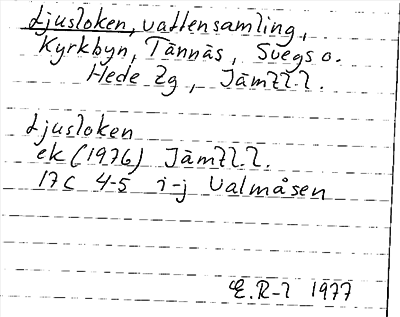 Ljusloken, vattensamling,
Kyrkbyn, Tännäs, Svegs o.
Hede Zg, Jämtl. l.
Ljusloken
ek (1976) Jämtl. l.
17C 4-5 i-j Valmåsen
E.R-l 1977